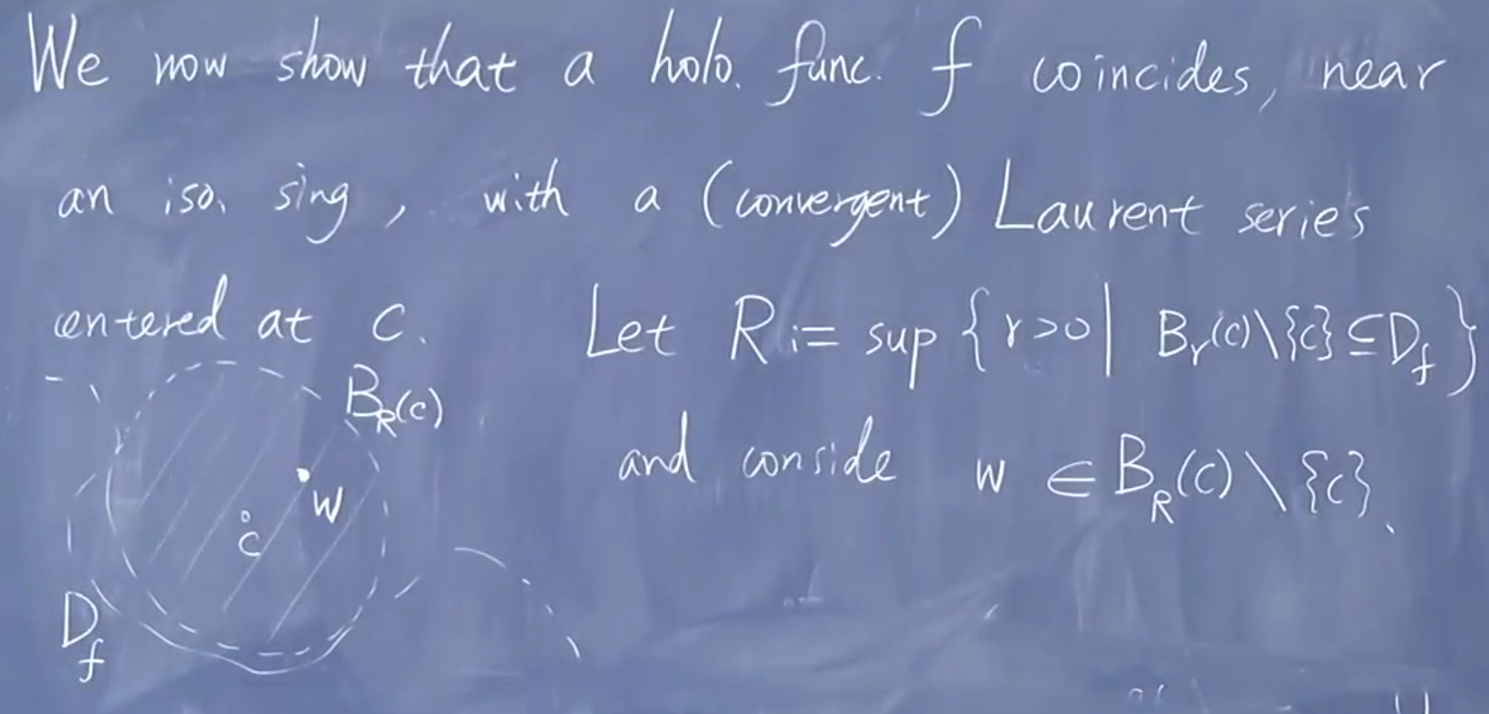 We now show that a holo. func. f coincides, near
an iso. sing, with a (convergent) Laurent series
centered at c. Let R := sup {r>0 | B_r(c)\{c} ⊆ D_f}
B_R(c)
and conside w ∈ B_R(c) \ {c}.
w
c
D_f